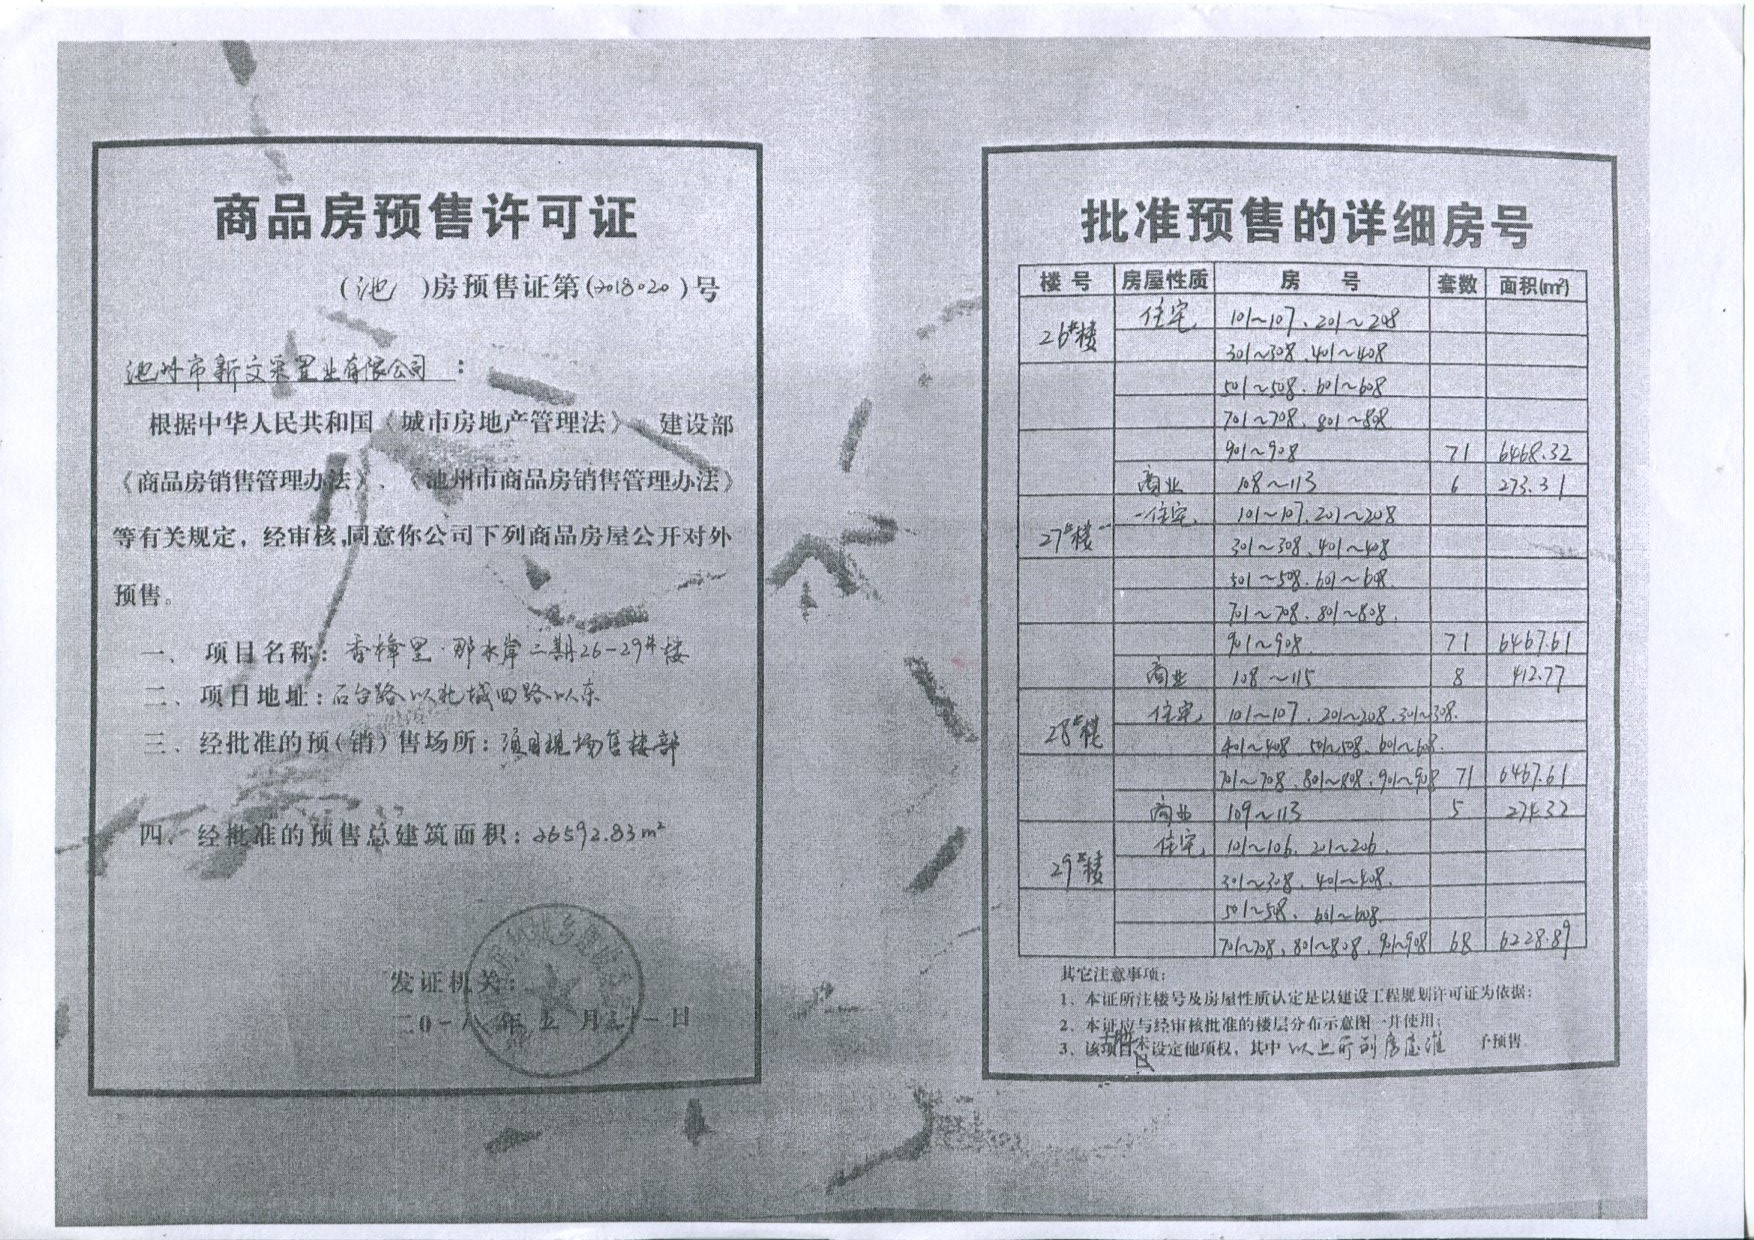 商品房预售许可证
(池 )房预售证第(2018020)号
池州市新文采置业有限公司 :
根据中华人民共和国《城市房地产管理法》、建设部
《商品房销售管理办法》、《池州市商品房销售管理办法》
等有关规定,经审核,同意你公司下列商品房屋公开对外
预售。
一、 项目名称: 香樟里·那水岸二期26-29#楼
二、项目地址: 石台路以北城西路以东
三、经批准的预(销)售场所: 项目现场售楼部
四、经批准的预售总建筑面积: 26592.83m²
发证机关:
二0一八年五月三十一日
批准预售的详细房号
楼号 房屋性质 房号 套数 面积(㎡)
26#楼 住宅 101~107、201~208
301~308、401~408
501~508、601~608
701~708、801~808
901~908 71 6468.32
商业 108~113 6 273.31
27#楼 住宅 101~107、201~208
301~308、401~408
501~508、601~608
701~708、801~808
901~908 71 6467.61
商业 108~115 8 412.77
28#楼 住宅 101~107、201~208、301~308
401~408、501~508、601~608
701~708、801~808、901~908 71 6467.61
商业 109~113 5 274.32
29#楼 住宅 101~106、201~206
301~308、401~408
501~508、601~608
701~708、801~808、901~908 68 6228.89
其它注意事项:
1、本证所注楼号及房屋性质认定是以建设工程规划许可证为依据;
2、本证应与经审核批准的楼层分布示意图一并使用;
3、该项目未设定他项权,其中以上所列房号准 予预售